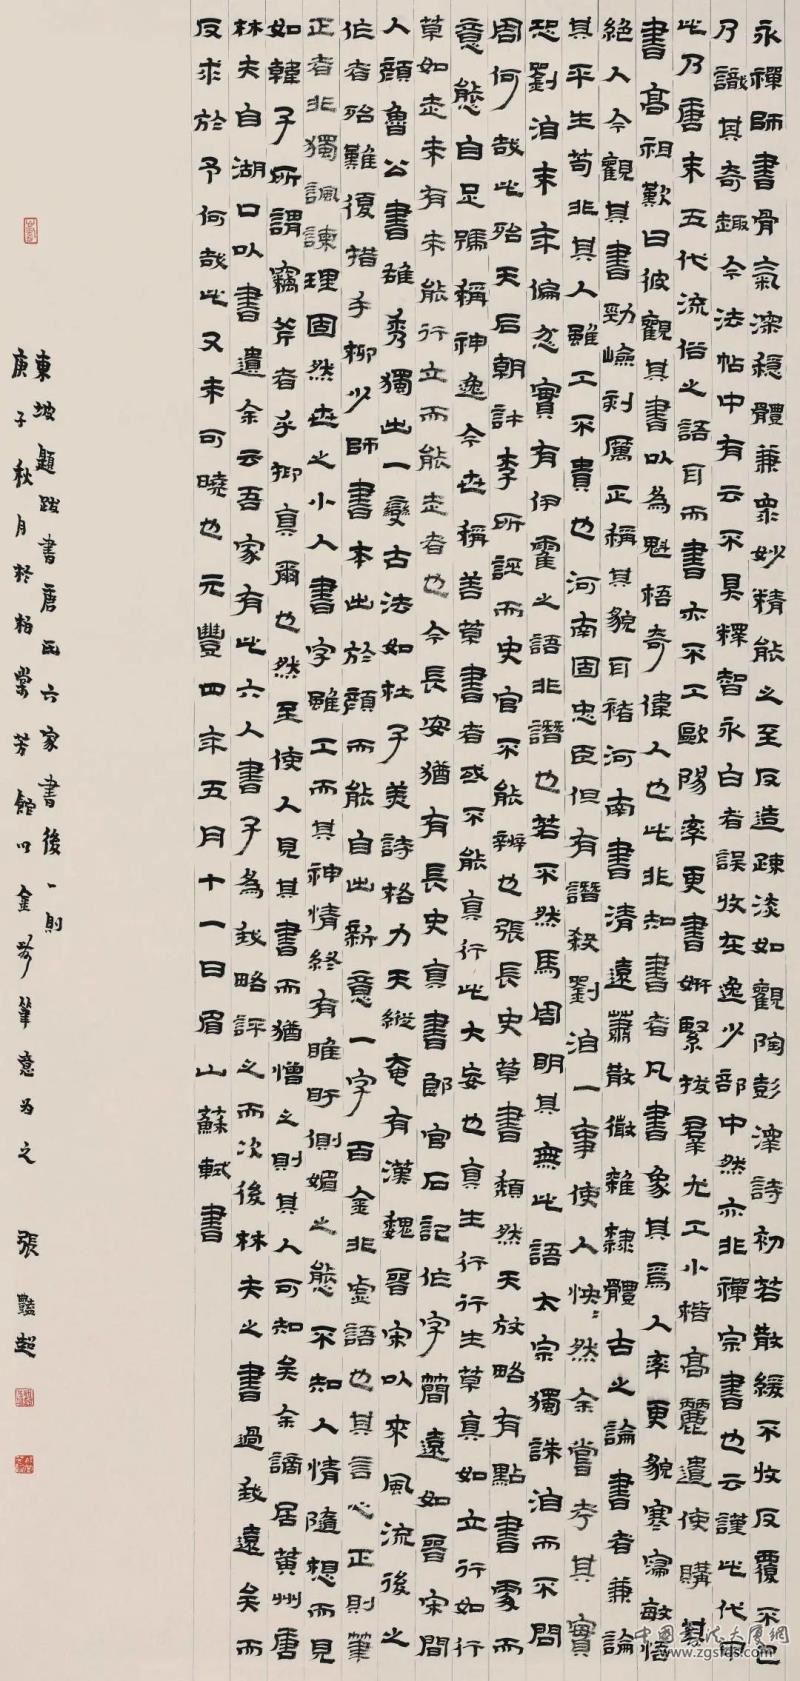 永禪師書骨氣深穩體兼眾妙精能之至反造疎淡如觀陶彭澤詩初若散緩不收反覆不已
乃識其奇趣今法帖中有云不具釋智永白者誤收在逸少部中然亦非禪宗書也云謹此代申
此乃唐末五代流俗之語耳而書亦不工歐陽率更書妍緊拔羣尤工小楷高麗遣使購其
書高祖歎曰彼觀其書以為魁梧奇偉人也此非知書者凡書象其為人率更貌寒寢敏悟
絕人今觀其書勁嶮刻厲正稱其貌耳褚河南書清遠蕭散微雜隸體古之論書者兼論
其平生苟非其人雖工不貴也河南固忠臣但有譖殺劉洎一事使人怏怏然余嘗考其實
恐劉洎末年偏忿實有伊霍之語非譖也若不然馬周明其無此語太宗獨誅洎而不問
周何哉此殆天后朝許李所誣而史官不能辨也張長史草書頹然天放略有點書處而
意態自足號稱神逸今世稱善草書者或不能真行此大妄也真生行行生草真如立行如行
草如走未有未能行立而能走者也今長安猶有長史真書郎官石記作字簡遠如晉宋間
人顏魯公書雄秀獨出一變古法如杜子美詩格力天縱奄有漢魏晉宋以來風流後之
作者殆難復措手柳少師書本出於顏而能自出新意一字百金非虛語也其言心正則筆
正者非獨諷諫理固然世之小人書字雖工而其神情終有睢盱側媚之態不知人情隨想而見
如韓子所謂竊斧者乎抑真爾也然至使人見其書而猶憎之則其人可知矣余謫居黃州唐
林夫自湖口以書遺余云吾家有此六人書子為我略評之而次後林夫之書過我遠矣而
反求於予何哉此又未可曉也元豐四年五月十一日眉山蘇軾書
東坡題跋書唐氏六家書後一則
庚子秋月於柏棠芳館以金農筆意為之 張豔超
中國書法大廈網
www.zgsfds.com